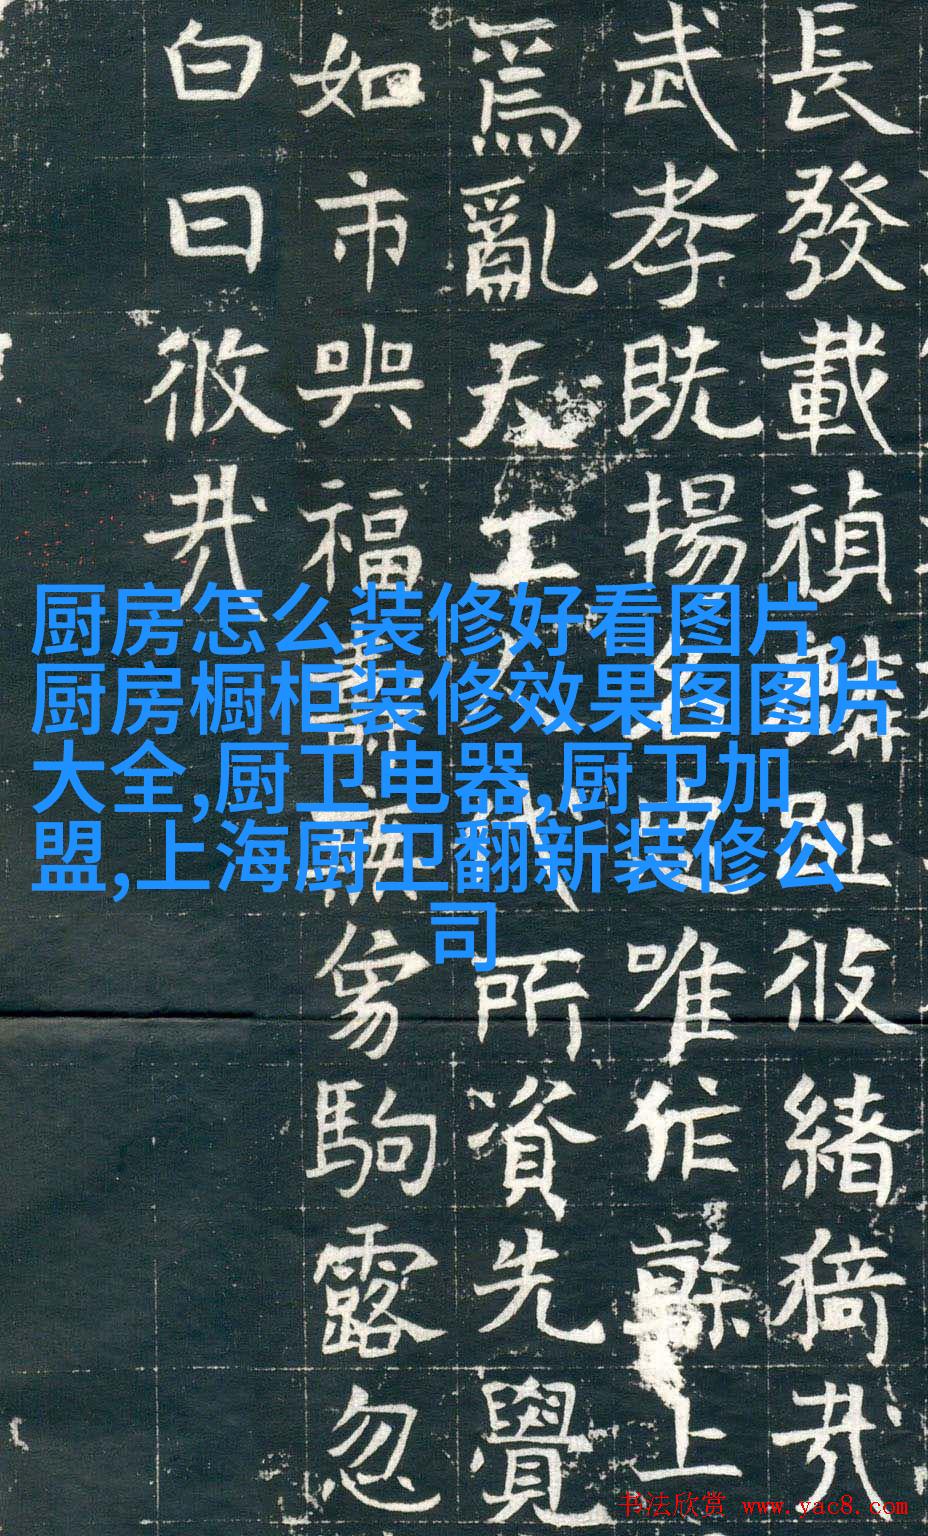 長發載禎趾彼緒猗哉
武孝既揚名唯作幹上
爲亂天工人代所資先覺
如市與福駒露忽
白日攸哉
厨房怎么装修好看图片,
厨房橱柜装修效果图图片
大全,厨卫电器,厨卫加
盟,上海厨卫翻新装修公
司
书法欣赏 www.yac8.com